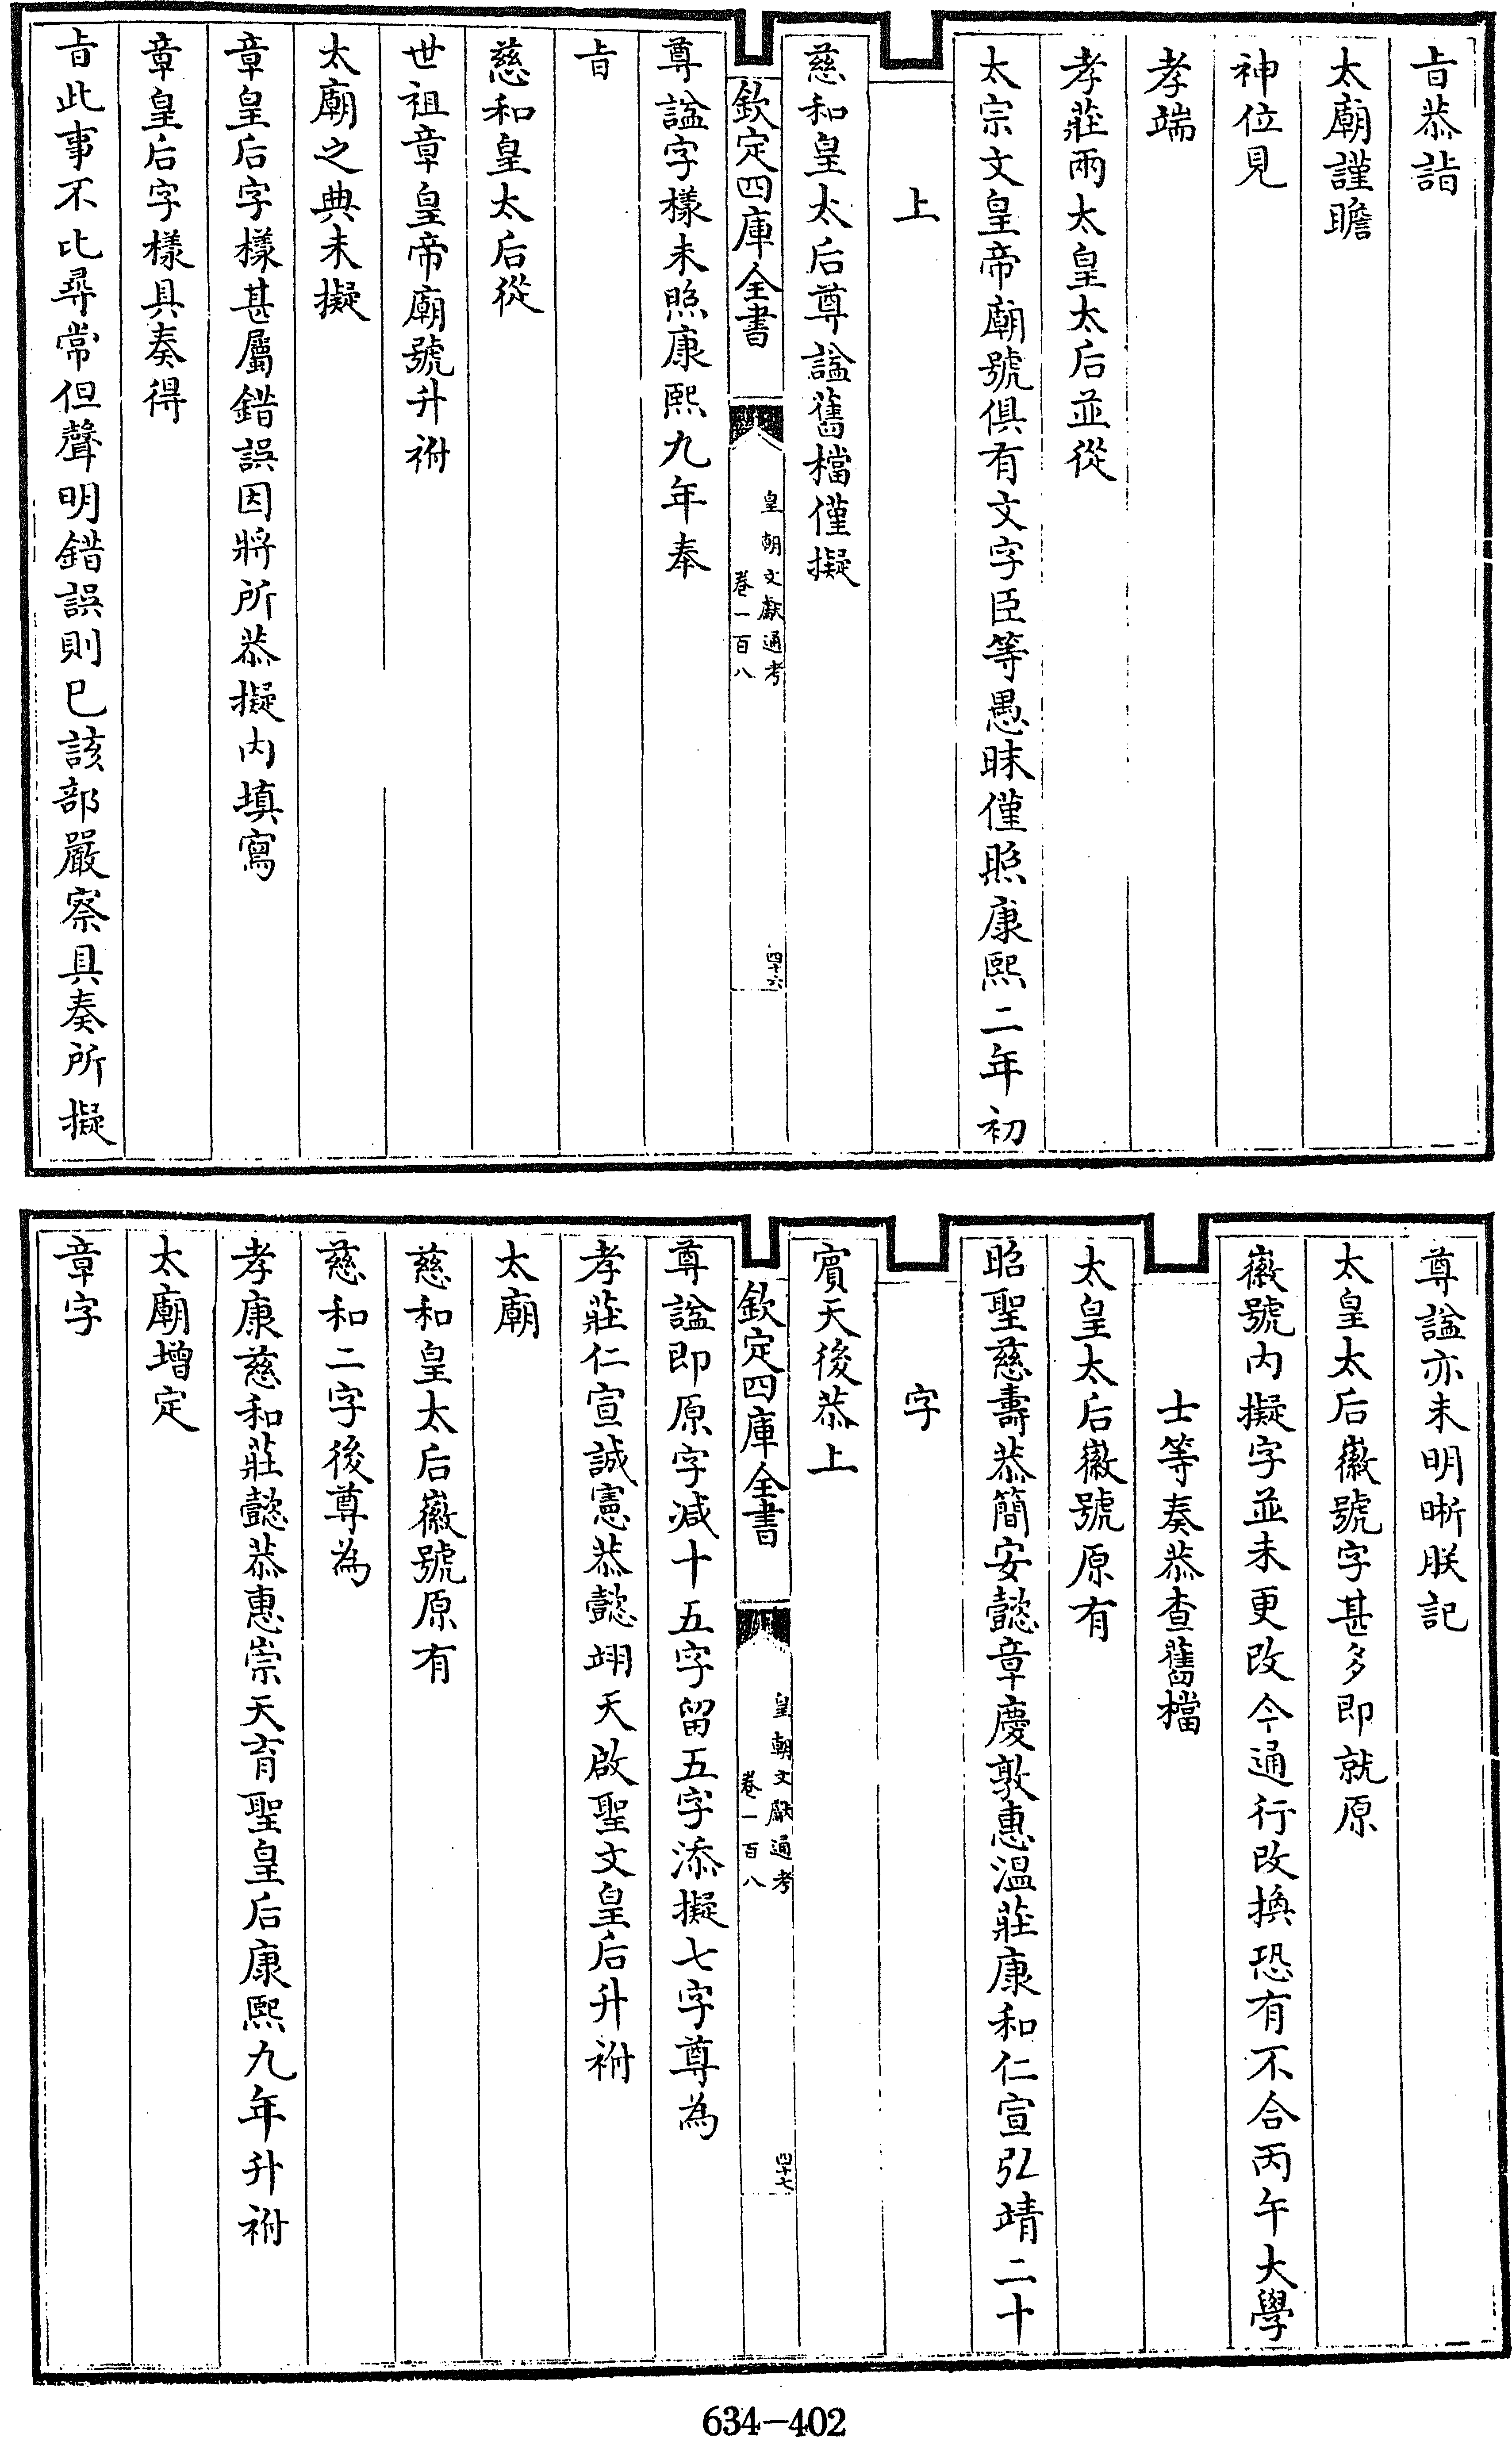 旨恭詣
太廟謹瞻
神位見
孝端
孝莊兩太皇太后並從
太宗文皇帝廟號俱有文字臣等愚昧僅照康熙二年初
上
慈和皇太后尊諡舊檔僅擬
欽定四庫全書
皇朝文獻通考
卷一百八
四十六
尊諡字樣未照康熙九年奉
旨
慈和皇太后從
世祖章皇帝廟號升祔
太廟之典未擬
章皇后字樣甚屬錯誤因將所恭擬內填寫
章皇后字樣具奏得
旨此事不比尋常但聲明錯誤則已該部嚴察具奏所擬
尊諡亦未明晰朕記
太皇太后徽號字甚多即就原
徽號內擬字並未更改今通行改換恐有不合丙午大學
士等奏恭查舊檔
太皇太后徽號原有
昭聖慈壽恭簡安懿章慶敦惠溫莊康和仁宣弘靖二十
字
賓天後恭上
欽定四庫全書
皇朝文獻通考
卷一百八
四十七
尊諡即原字減十五字留五字添擬七字尊為
孝莊仁宣誠憲恭懿翊天啟聖文皇后升祔
太廟
慈和皇太后徽號原有
慈和二字後尊為
孝康慈和莊懿恭惠崇天育聖皇后康熙九年升祔
太廟增定
章字
634-402